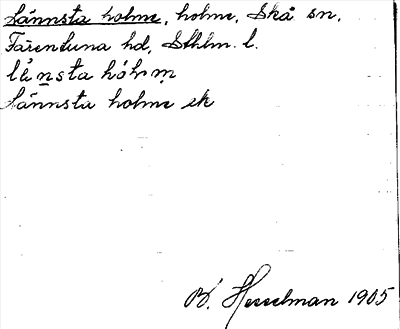 Lännsta holme, holme, Skå sn,
Färentuna hd, Sthlm. l.
lè̱nsta hóḷmṃ
Lännsta holme ek
B. Hesselman 1905